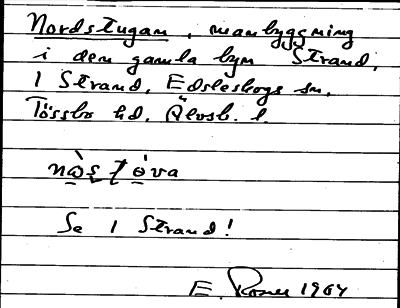 Nordstugan, manbyggning
i den gamla byn Strand,
1 Strand, Edsleskogs sn,
Tössbo hd, Älvsb. l.
Se 1 Strand!
E. 1964